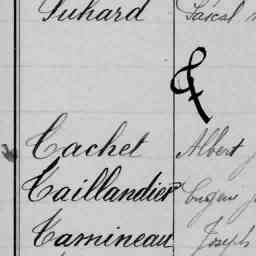 Suhard Pascal
T
Tachet Albert
Taillandier Eugène
Tamineau Joseph